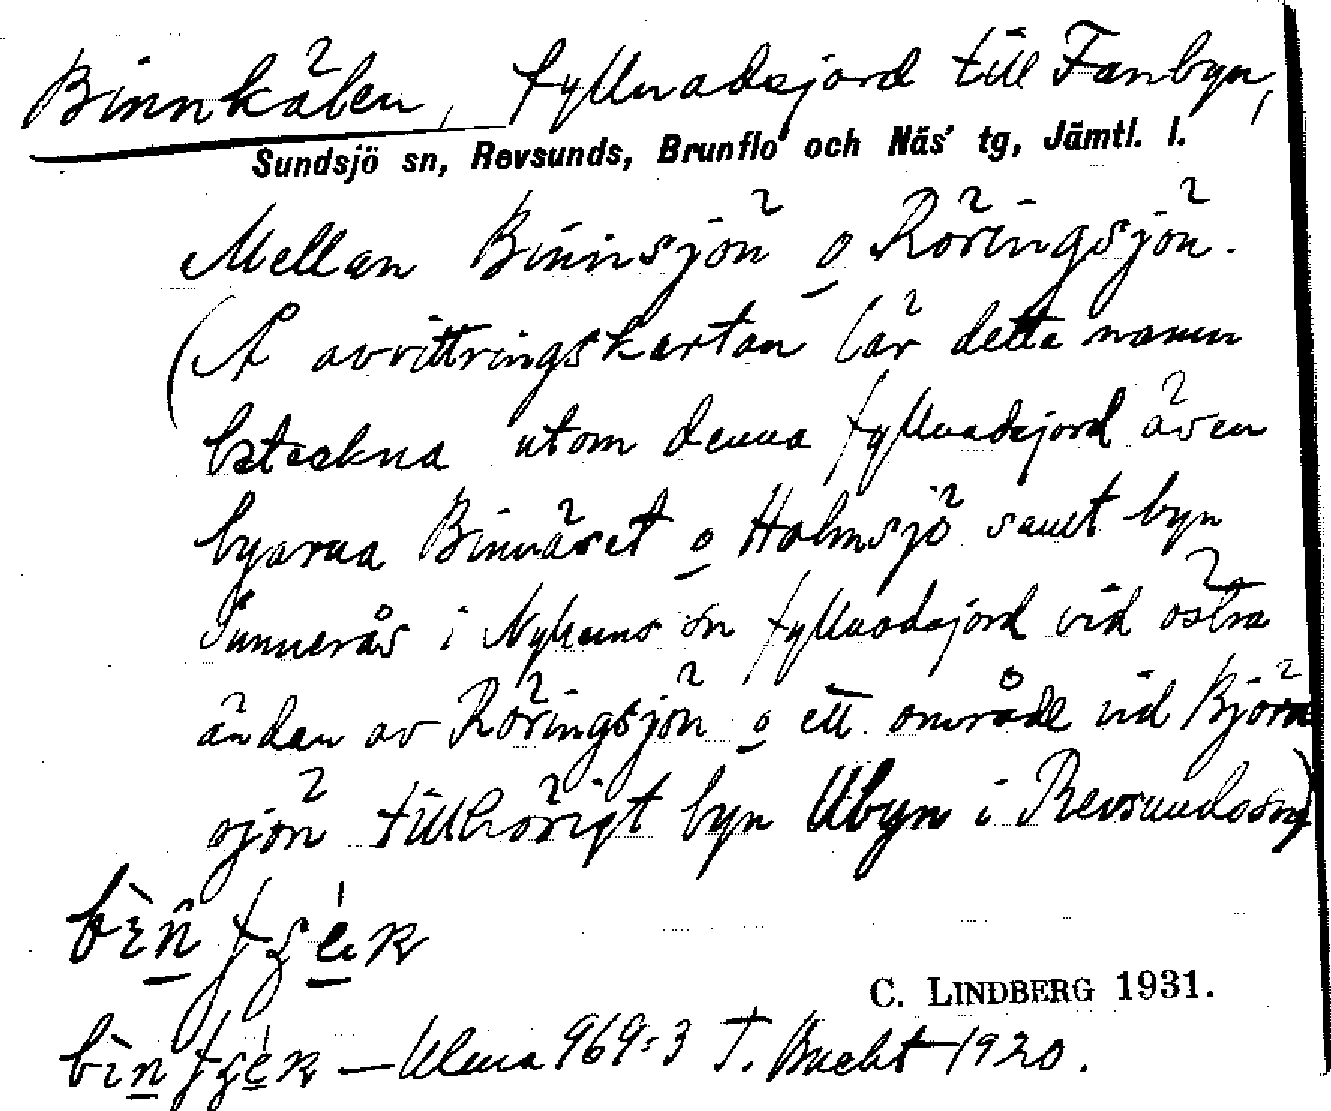 Binnkälen, fyllnadsjord till Fanbyn,
Sundsjö sn, Revsunds, Brunflo och Näs' tg, Jämtl. l.
Mellan Binnsjön o Röringsjön.
(Å avvittringskartan lär detta namn
beteckna utom denna fyllnadsjord även
byarna Binnäset o Holmsjö samt byn
Tunnerås i Nyhems sn fyllnadsjord vid östra
ändan av Röringsjön o ett område vid Björn
sjön tillhörigt byn Ubyn i Revsunds sn)
C. LINDBERG 1931.
Ulma 969:3 T. Bucht 1920.